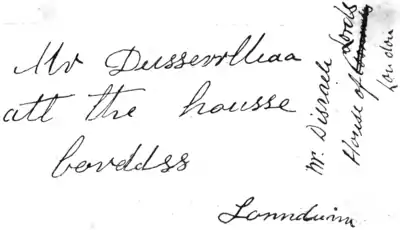 Mr Dusservlleaa
att the housse
bovddss
Lonnduinn
Mr. Disraeli
House of Lords
London